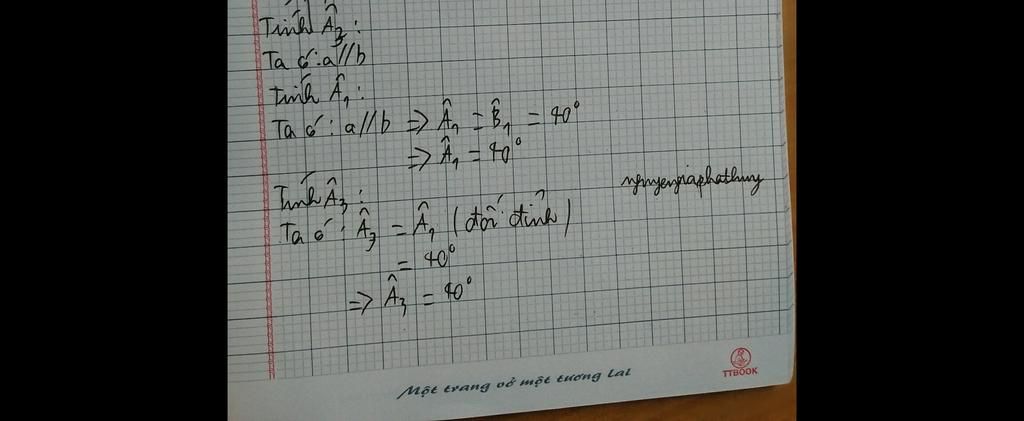 Tính Â₃ :
Ta có : a//b
Tính Â₁ :
Ta có : a//b => Â₁ = B̂₁ = 40°
=> Â₁ = 40°
Tính Â₃ :
Ta có : Â₃ = Â₁ (đối đỉnh)
= 40°
=> Â₃ = 40°
nguyengiaphathuy
Một trang vở một tương lai
TTBOOK